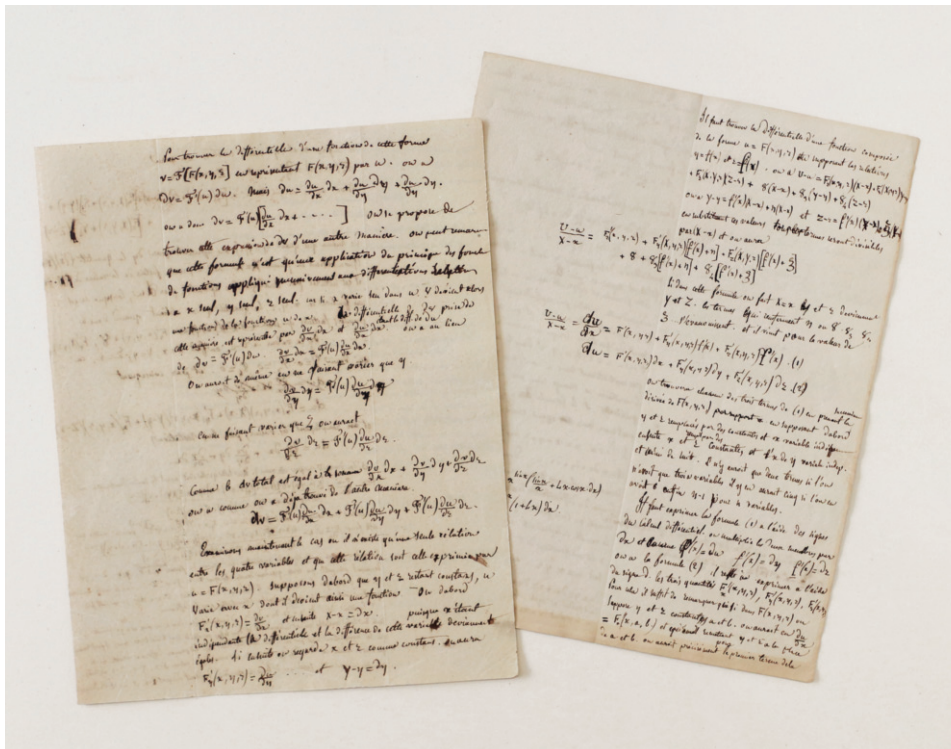 Pour trouver la différentielle d'une fonction de cette forme
v = F[F(x,y,z)] en représentant F(x,y,z) par u. on a
dv = F'(u) du. Mais du = du/dx dx + du/dy dy + du/dz dz.
on a donc dv = F'(u)[du/dx dx + - - - . ] on se propose de
trouver cette expression de dv d'une autre manière. on peut remar-
que cette formule n'est qu'une application du principe des fonct
de fonctions appliqué aux différentiations
à x seul, y seul, z seul. si x varie seul dans u V devient alors
une fonction de la fonction u de x. la différentielle de v prise de
cette manière est représentée par dv/dx dx et du/dx dx. on a au lieu
de dv = F'(u) du. dv/dx dx = F'(u) du/dx dx.
On auroit de même en ne faisant varier que y
dv/dy dy = F'(u) du/dy dy
en ne faisant varier que z on auroit
dv/dz dz = F'(u) du/dz dz.
Comme le dv total est égal à la somme dv/dx dx + dv/dy dy + dv/dz dz
on a comme on a déjà trouvé de l'autre manière.
dv = F'(u) du/dx dx + F'(u) du/dy dy + F'(u) du/dz dz.
Examinons maintenant le cas où il n'existe qu'une seule relation
entre les quatre variables et que cette relation soit exprimée par
u = F(x,y,z). Supposons d'abord que y et z restant constans, u
varie avec x dont il devient ainsi une fonction. On d'abord
F'x(x,y,z) = du/dx et ensuite X-x = dx. puisque x étant
indépendante la différentielle et la différence de cette variable deviennent
égales. Si ensuite on regarde x et z comme constans. on aura
F'y(x,y,z) = du/dy .... et Y-y = dy.
Il faut trouver la différentielle d'une fonction composée
de la forme u = F(x,y,z) en supposant les relations
y = f(x) et z = f(x). on a
on a Y-y = f'(x)(X-x) + et Z-z = f'(x)(X-x) +
en substituant ces valeurs tous les termes seront divisibles
par (X-x) et on aura
U-u/X-x = F'x(x,y,z) + F'y(x,y,z)[f'(x)+η] + F'z(x,y,z)[f'(x)+ξ]
+ 8 + 8[f'(x)+η] + 8[f'(x)+ξ]
Si dans cette formule on fait X=x Y et Z deviennent
y et z. les termes qui contiennent η ou 8 8, 8,
ξ s'évanouissent, et il vient pour la valeur de
U-u/X-x = du/dx = F'x(x,y,z) + F'y(x,y,z)f'(x) + F'z(x,y,z)f'(x) .(1)
du = F'x(x,y,z)dx + F'y(x,y,z)dy + F'z(x,y,z)dz.(2)
on trouvera chacun des trois termes de (1) en prenant la
dérivée de F(x,y,z) par rapport en supposant d'abord
y et z remplacés par des constantes et x variable indép.
ensuite x et z constantes, et y variable indep.
et ainsi de suite. il n'y auroit que deux termes si l'on
n'avoit que trois variables il y en auroit cinq si l'on en
avoit 6 enfin n-1 pour n variables.
Il faut exprimer la formule (1) à l'aide des signes
du calcul différentiel, on multiplie les deux membres par
dx et f'(x) = dy f'(x) = dz
on a la formule (2). il reste à exprimer à l'aide
du signe d. les trois quantités F'x(x,y,z), F'y(x,y,z), F'z(x,y,z)
Pour cela il suffit de remarquer que si dans F(x,y,z) on
suppose y et z constantes a et b. on auroit du/dx
= F'x(x,a,b) et qu'ensuite remettant y et z à la place
de a et b on auroit le premier terme de la
(1+bx) dx